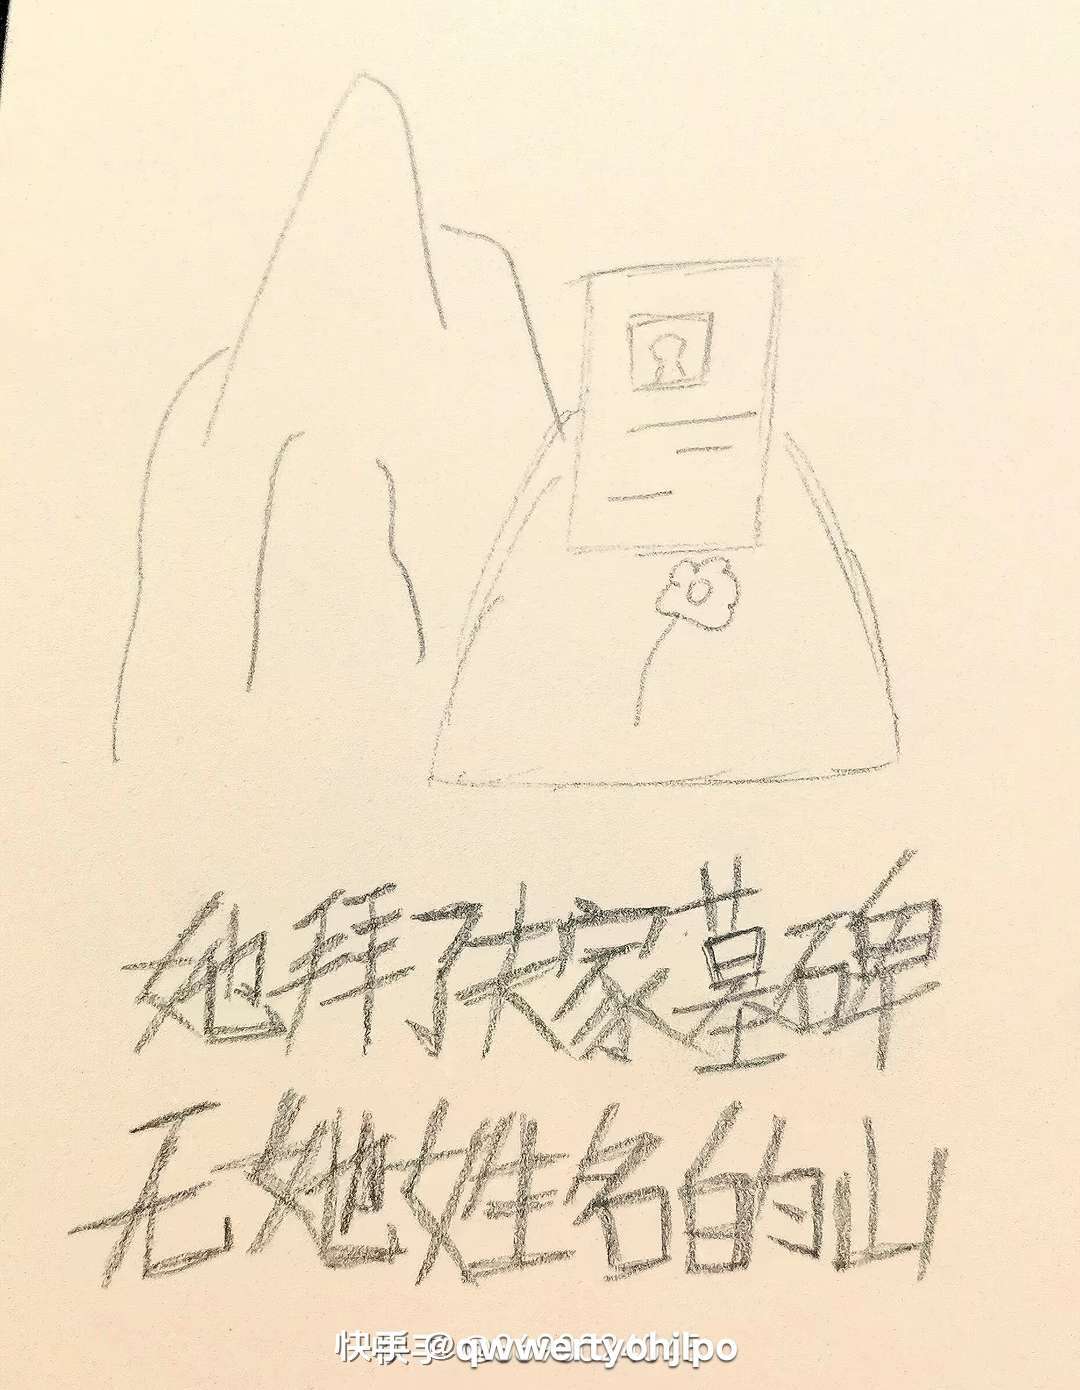 她拜了夫家墓碑
无她姓名的山
快手 @qwwertyohjlpo